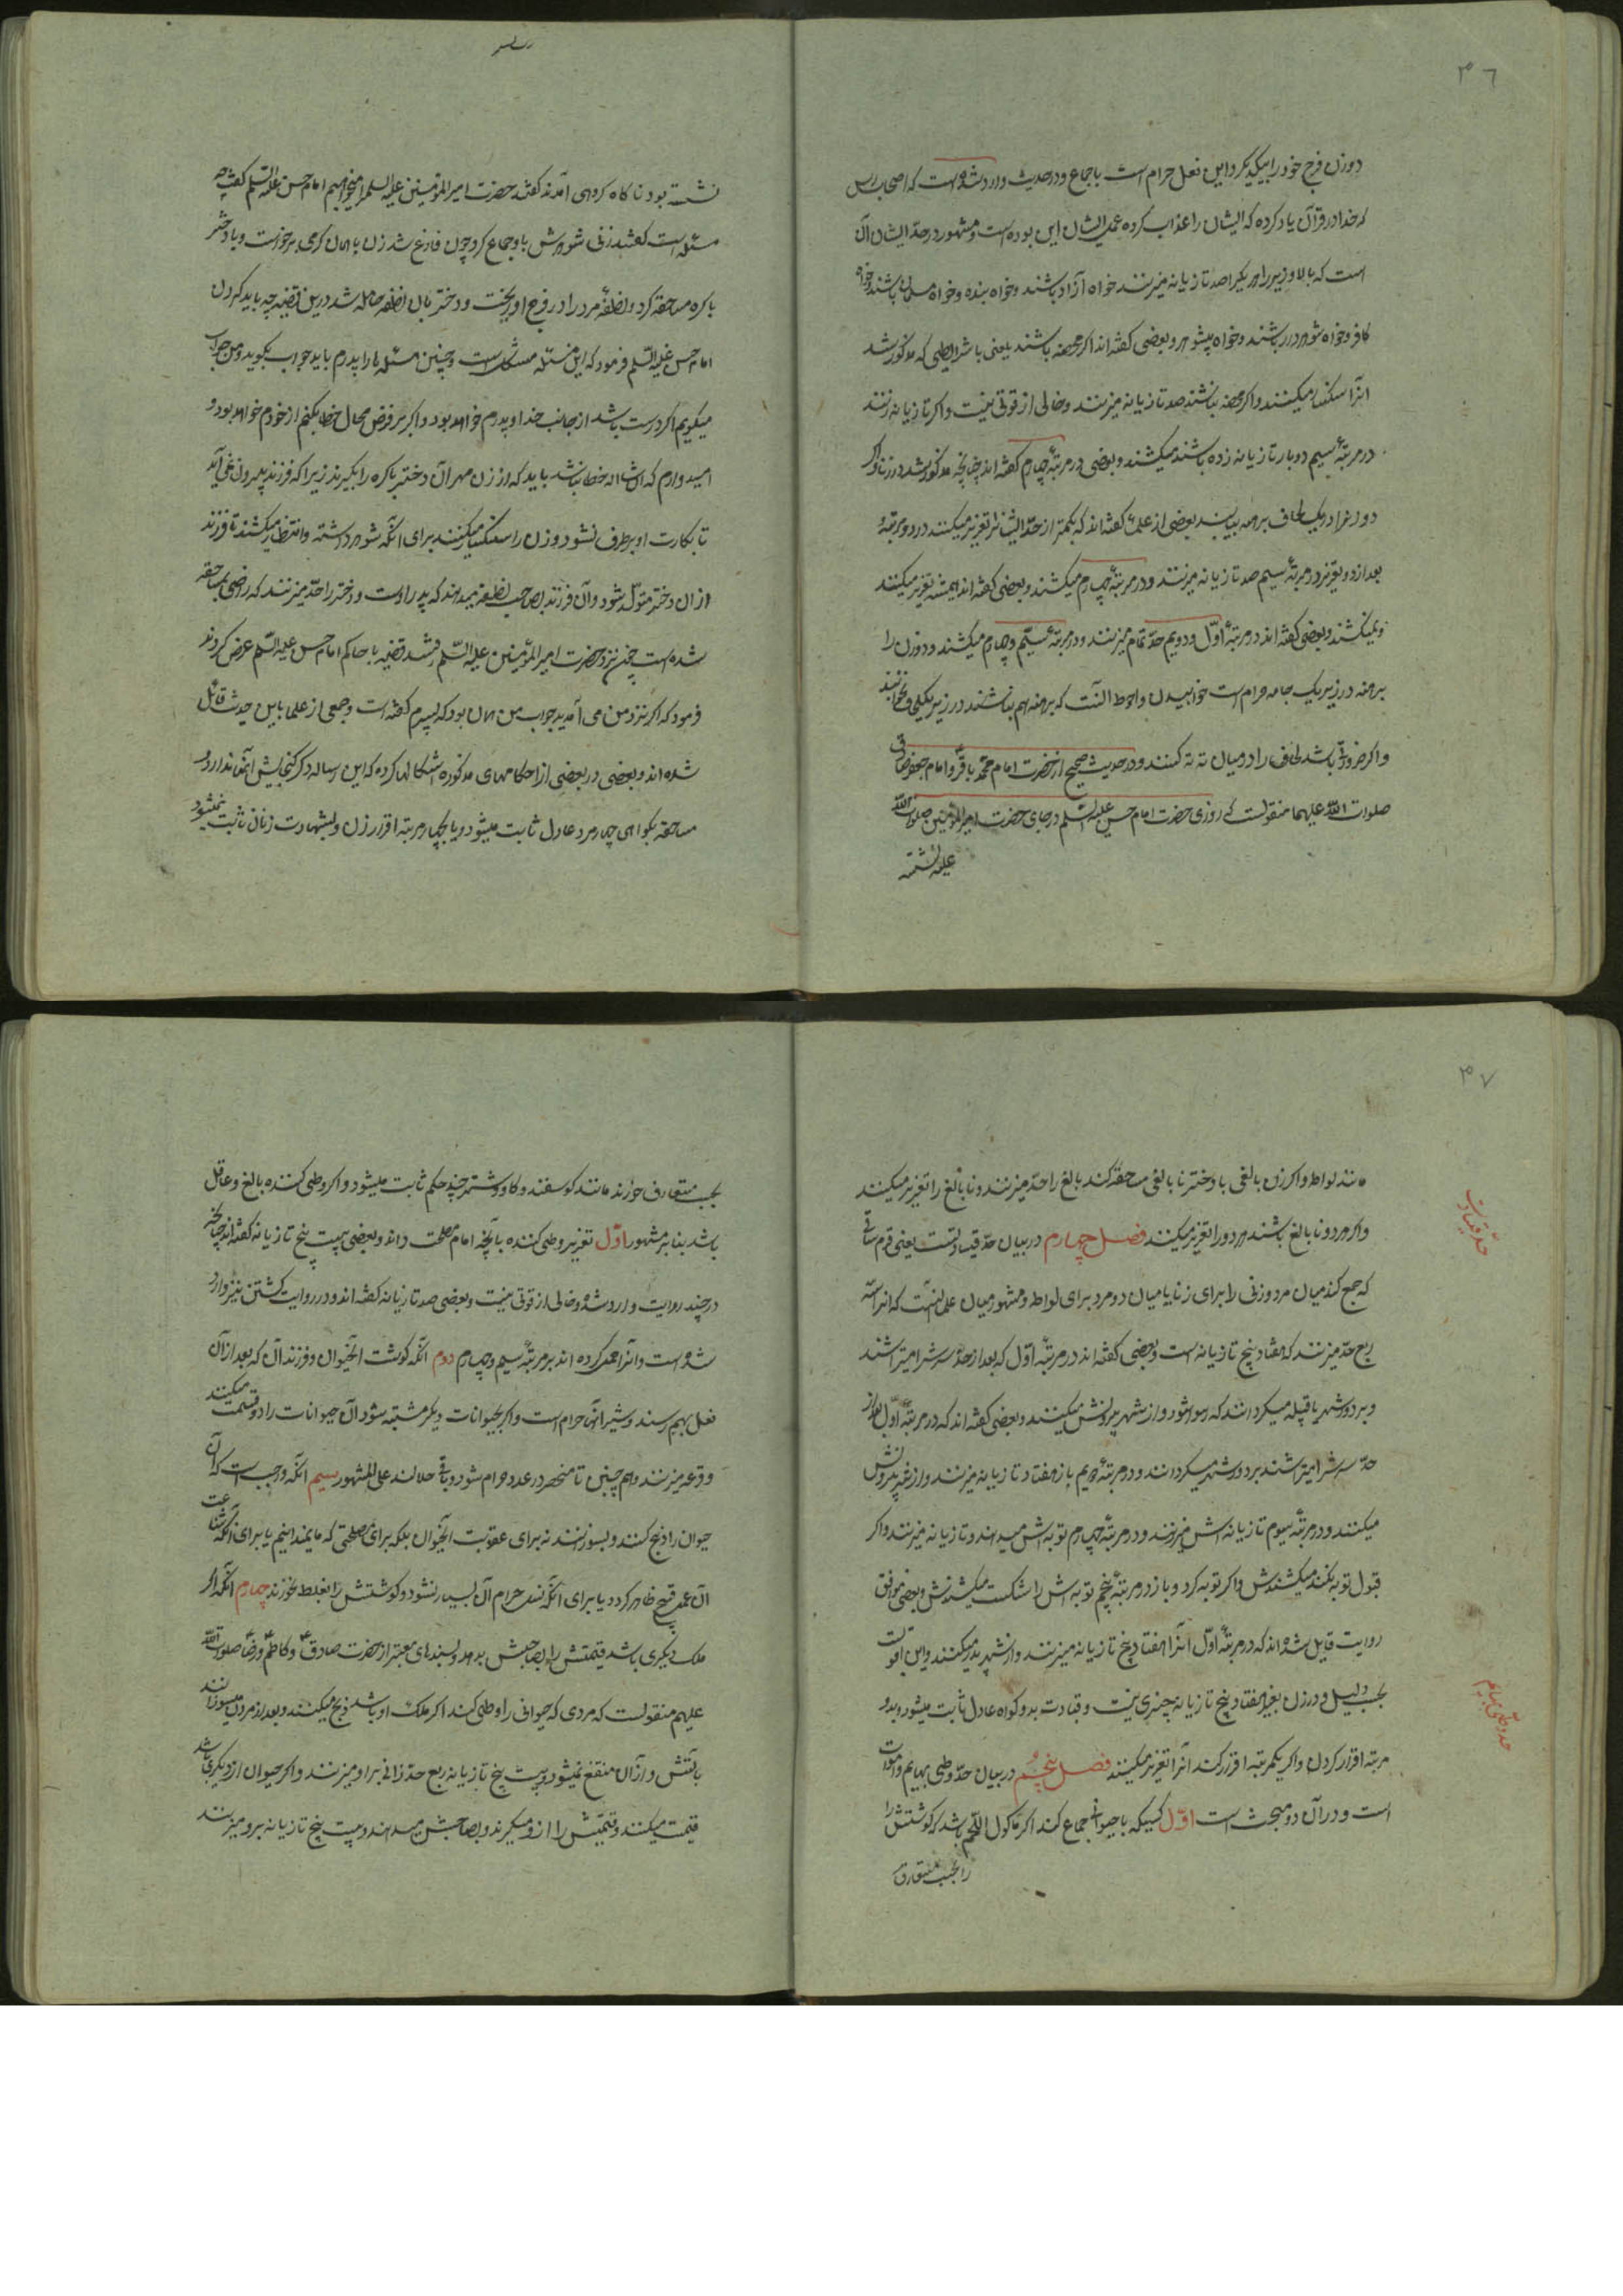 ۴۶
دو زن فرج خود را بیکدیکر و این فعل حرام است باجماع و در حدیث وارد شده است که اصحاب رس
که خدا در قرآن یاد کرده که ایشان را عذاب کرده عمل ایشان این بوده است و مشهور در حدّ ایشان آن
است که بالا و زیر را هر یکیرا صد تازیانه میزنند خواه آزاد باشند و خواه بنده و خواه مسلمان باشند و خواه
کافر و خواه شوهردار باشند و خواه بیشوهر و بعضی کفته‌اند اکر محصنه باشند یعنی با شرایطی که مذکور شد
انرا سنکسار میکنند و اکر محصنه نباشند صد تازیانه میزنند و خالی از قوتی نیست و اکر تازیانه زنند
در مرتبهٔ سیم دو بار تازیانه زده باشند میکشند و بعضی در مرتبهٔ چهارم کفته‌اند چنانچه مذکور شد در زنا و اکر
دو زنرا در یک لحاف برهنه بیابند بعضی از علما کفته‌اند که بکمتر از حدّ ایشانرا تعزیر میکنند در دو مرتبه و
بعد از دو تعزیر در مرتبهٔ سیم صد تازیانه میزنند و در مرتبهٔ چهارم میکشند و بعضی کفته‌اند همیشه تعزیر میکنند
و نمیکشند و بعضی کفته‌اند در مرتبهٔ اوّل و دویم حدّ تمام میزنند و در مرتبهٔ سیّم و چهارم میکشند و دو زن را
برهنه در زیر یک جامه حرام است خوابیدن و احوط آنست که برهنه هم نباشند در زیر یکلحاف نخوابند
و اکر ضرورتی باشد لحاف را در میان ته ته کنند و در حدیث صحیح از حضرت امام محمد باقر و امام جعفر صادق
صلوات اللّه علیهما منقولست که روزی حضرت امام حسن علیه السّلم در جای حضرت امیر المؤمنین صلوات اللّه
علیه نشسته
نشسته بود ناکاه کروهی آمدند کفتند حضرت امیر المؤمنین علیه السلم را میخواهیم امام حسن علیه السّلم کفت چه
مسئله است کفتند زنی شوهرش با او جماع کرد چون فارغ شد زن با همان کرمی برخواست و با دختر
باکره مساحقه کرد و نطفهٔ مرد را در فرج او ریخت و دختر بان نطفه حامله شد درین قضیه چه باید کردن
امام حسن علیه السّلم فرمود که این مسئله مشکل است و چنین مسئله ها را پدرم باید جواب بکوید و من جواب
میکویم اکر درست باشد از جانب خدا و پدرم خواهد بود و اکر بر فرض محال خطا بکنم از خودم خواهد بود و
امیدوارم که انشااله خطا نباشد باید که از زن مهر آن دختر باکره را بکیرند زیرا که فرزند بیرون نمی آید
تا بکارت او برطرف نشود و زن را سنکسار میکنند برای آنکه شوهر داشته و انتظار میکشند تا فرزند
از ان دختر متولّد شود و آن فرزند بصاحب نطفه میدهند که پدر اوست و دختر را حدّ میزنند که راضی بمساحقه
شده است چون نزد حضرت امیر المؤمنین علیه السّلم رفتند قضیه با حاکم امام حسن علیه السّلم عرض کردند
فرمود که اکر نزد من می آمدید جواب من همان بود که پسرم کفته است و جمعی از علما باین حدیث قائل
شده اند و بعضی در بعضی از احکامهای مذکوره اشکالها کرده که این رساله ذکر کنجایش آنها ندارد و
مساحقه بکواهی چهار مرد عادل ثابت میشود و یا بچهار مرتبه اقرار زن و بشهادت زنان ثابت نمیشود
۴۷
مانند لواط و اکر زن بالغی با دختر نابالغی مساحقه کند بالغ را حدّ میزنند و نابالغ را تعزیر میکنند
و اکر هر دو نابالغ باشند هر دو را تعزیر میکنند فصل چهارم در بیان حدّ قیادتست یعنی قرم ساقی
که جمع کند میان مرد و زنی را برای زنا یا میان دو مرد برای لواط و مشهور میان علما آنست که انرا سه
ربع حدّ میزنند که هفتاد و پنج تازیانه است و بعضی کفته اند در مرتبهٔ اوّل که بعد از حدّ سر شرا میتراشند
و بر دور شهر یا قبیله میکردانند که رسوا شود و از شهر بیرونش میکنند و بعضی کفته اند که در مرتبهٔ اوّل بعد از
حدّ سر شرا میتراشند بر دور شهر میکردانند و در مرتبهٔ دویم باز هفتاد تازیانه میزنند و از شهر بیرونش
میکنند و در مرتبهٔ سیوم تازیانه اش میزنند و در مرتبهٔ چهارم توبه اش میدهند و تازیانه میزنند و اکر
قبول توبه نکند میکشندش و اکر توبه کرد و باز در مرتبهٔ پنجم توبه اش را شکست میکشندش و بعضی موافق
روایت قایل شده اند که در مرتبهٔ اوّل انرا هفتاد و پنج تازیانه میزنند و از شهر بدر میکنند و این اقویست
بحسب دلیل و در زن بغیر هفتاد و پنج تازیانه چیزی نیست و قیادت بدو کواه عادل ثابت میشود و بدو
مرتبه اقرار کردن و اکر یکمرتبه اقرار کند انرا تعزیر میکنند فصل پنجم در بیان حدّ وطی بهایم و اموات
است و در آن دو مبحث است اوّل کسیکه با حیوانی جماع کند اکر مأکول اللّحم باشد که کوشتش را
را بحسب متعارف
حدّ قیادت
حد وطی بهایم
بحسب متعارف خورند مانند کوسفند و کاو و شتر چند حکم ثابت میشود و اکر وطی کننده بالغ و عاقل
باشد بنا بر مشهور اوّل تعزیر وطی کننده بآنچه امام مصلحت داند و بعضی بیست پنج تازیانه کفته اند چنانچه
در چند روایت وارد شده و خالی از قوتی نیست و بعضی صد تازیانه کفته اند و در روایت کشتن نیز وارد
شده است و آنرا حمل کرده اند بر مرتبهٔ سیم و چهارم دوم آنکه کوشت آنحیوان و فرزند آن که بعد از آن
فعل بهم رسند و شیر آنها حرام است و اکر بحیوانات دیکر مشتبه شود آن حیوانات را دو قسمت میکنند
و قرعه میزنند و هم چنین تا منحصر در عدد حرام شود و باقی حلالند علی المشهور سیم آنکه واجب است که آن
حیوان را ذبح کنند و بسوزانند نه برای عقوبت آنحیوان بلکه برای مصلحتی که ما نمیدانیم یا برای آنکه شناعت
آن عمل قبیح ظاهر کردد یا برای آنکه نسل حرام آن بسیار نشود و کوشتش را بغلط نخورند چهارم آنکه اکر
ملک دیکری باشد قیمتش را بصاحبش بدهد و بسندهای معتبر از حضرت صادق و کاظم و رضا صلوات اللّه
علیهم منقولست که مردی که حیوانی را وطی کند اکر ملک او باشد ذبح میکنند و بعد از مردن میسوزانند
بآتش و از آن منتفع نمیشود و بیست پنج تازیانه ربع حدّ زانی بر او میزنند و اکر حیوان از دیکری باشد
قیمت میکنند و قیمتش را از و میکیرند و بصاحبش میدهند و بیست پنج تازیانه بر و میزنند